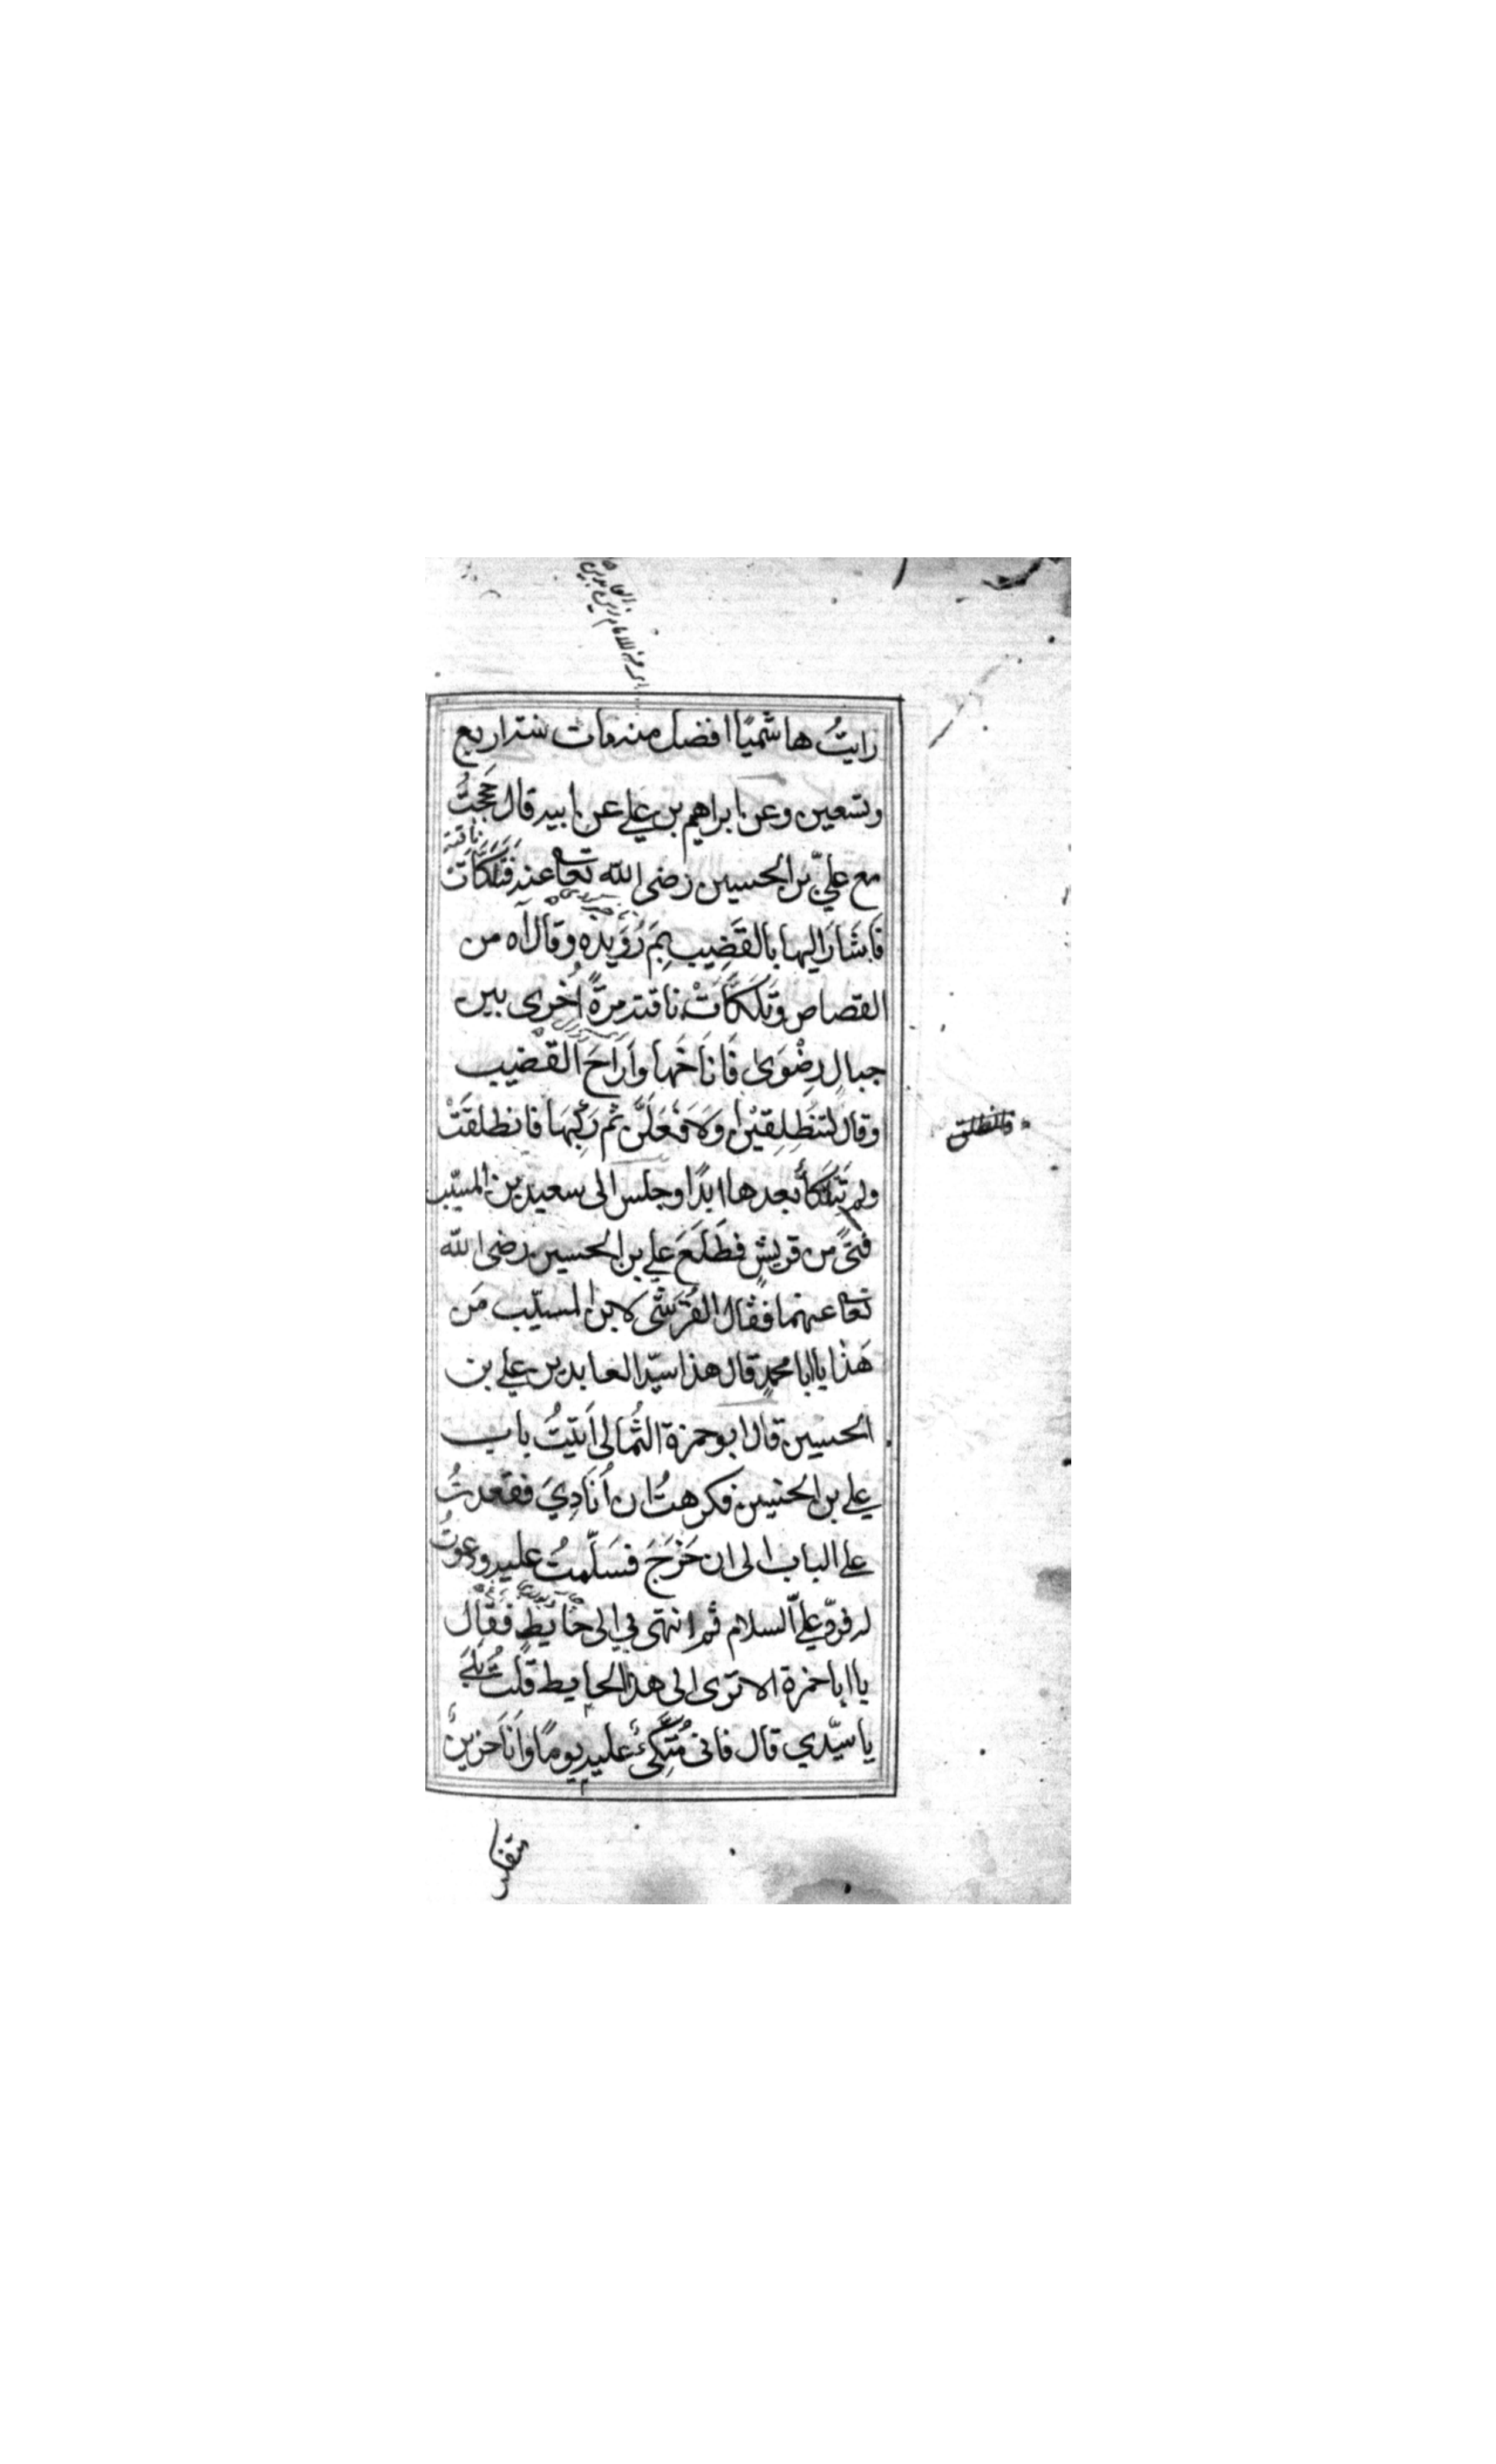 رايتُ هاشميًا افضل منه مات سنة اربع
وتسعين وعن ابراهيم بن علي عن ابيه قال حَججتُ
مع عليّ بن الحسين رضى الله تعا عنه فَتَلَكَّاَتْ ناقته
فَاَشَارَ اليها بالقَضِيبِ ثمَ رُوَيده وقال آه من
القصاص وتَلَكَّاَتْ ناقته مرةً اُخرى بين
جبالِ رِضْوَى فَاَنَاخَها وَاَرَاحَ القَضيب
وقال لتنطَلِقينَ اولَاَفْعَلَنَّ ثم رَكِبَهَا فانطلقَتْ
ولم تَتَلَكَّأ بعدها ابدًا وجلس الى سعيد بن المسيّب
فتىً من قريشٍ فطَلَعَ علي بن الحسين رضى الله
تعا عنهما فقال القُرَشي لابن المسيّب مَن
هَذا يا ابا محمدٍ قال هذا سيّد العابدين علي بن
الحسين قال ابو حمزة الثُمالى اَتيتُ باب
علي بن الحسين فكرهتُ ان اُنَادِيَ فقعدتُ
على الباب الى ان خَرَجَ فسَلّمتُ عليه ودعوتُ
له فردّ عليَّ السلام ثم انتهى بي الى حَايطٍ فَقَال
يا ابا حمزة الا ترى الى هذا الحايط قلتُ بَلَى
يا سيّدي قال فانى مُتَّكِئٌ عليه يومًا وَاَنَا حزينٌ